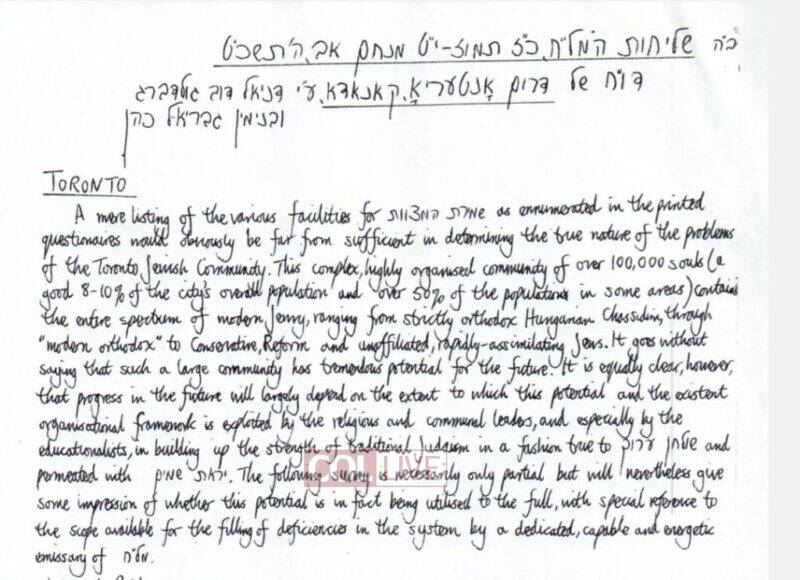 ב"ה שליחות המל"ח, כ"ז תמוז-י"ט מנחם אב, ה'תשכ"ט
דו"ח של דרום אָנטעריאָ, קאַנאַדאַ, ע"י דניאל דוב גולדברג
ובנימין גבריאל כהן
TORONTO
A mere listing of the various facilities for שמירת המצוות as ennumerated in the printed
questionaires would obviously be far from sufficient in determining the true nature of the problems
of the Toronto Jewish Community. This complex, highly organised community of over 100,000 souls (a
good 8-10% of the city's overall population and over 50% of the populations in some areas) contains
the entire spectrum of modern Jewry, ranging from strictly orthodox Hungarian Chassidim, through
"modern orthodox" to Conservative, Reform and unaffiliated, rapidly-assimilating Jews. It goes without
saying that such a large community has tremendous potential for the future. It is equally clear, however,
that progress in the future will largely depend on the extent to which this potential and the existent
organisational framework is exploited by the religious and communal leaders, and especially by the
educationalists, in building up the strength of traditional Judaism in a fashion true to שולחן ערוך and
permeated with יראת שמים. The following survey is necessarily only partial but will nevertheless give
some impression of whether this potential is in fact being utilised to the full, with special reference to
the scope available for the filling of deficiencies in the system by a dedicated, capable and energetic
emissary of מל"ח.
COL LIVE